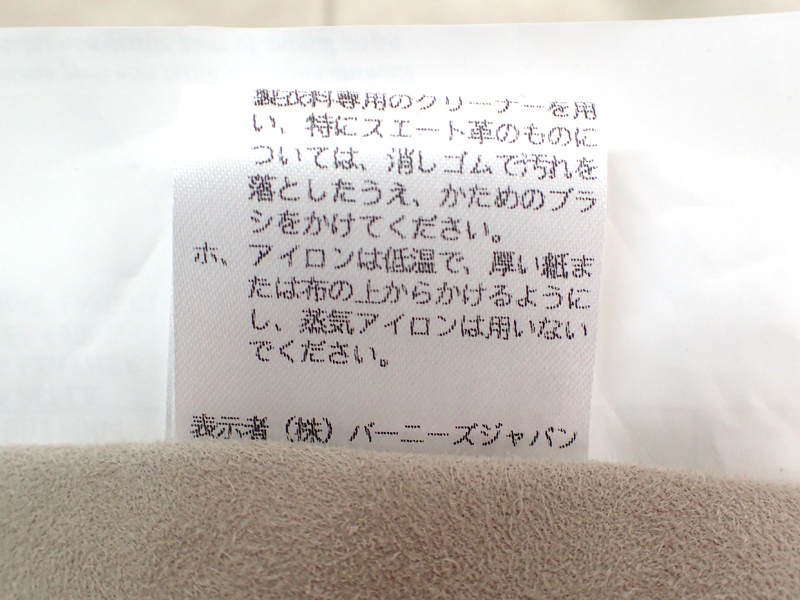 製衣料専用のクリーナーを用
い、特にスエート革のものに
ついては、消しゴムで汚れを
落としたうえ、かためのブラ
シをかけてください。
ホ、アイロンは低温で、厚い紙ま
たは布の上からかけるように
し、蒸気アイロンは用いない
でください。
表示者（株）バーニーズジャパン